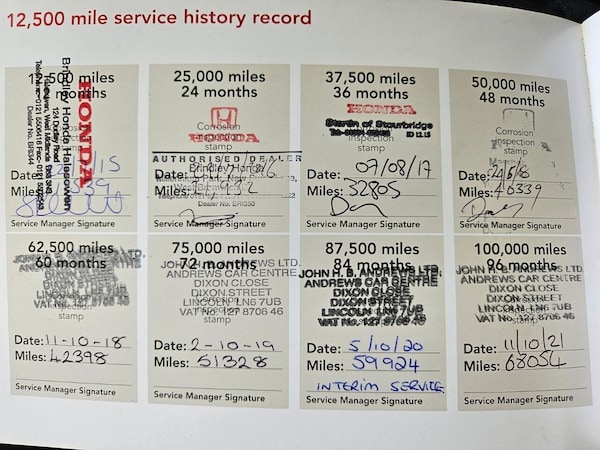 12,500 mile service history record
12,500 miles
12 months
HONDA
Brindley Honda Halesowen
Date:
Miles:
Service Manager Signature
25,000 miles
24 months
Corrosion
inspection
stamp
HONDA
AUTHORISED DEALER
Brindley Honda
Dealer No. BRI350
Date:
Miles:
Service Manager Signature
37,500 miles
36 months
HONDA
Stratstone of Stourbridge
Date: 09/08/17
Miles: 32805
Service Manager Signature
50,000 miles
48 months
Corrosion
inspection
stamp
Date:
Miles: 40339
Service Manager Signature
62,500 miles
60 months
stamp
Date: 11-10-18
Miles: 42398
Service Manager Signature
75,000 miles
72 months
JOHN H. B. ANDREWS LTD.
ANDREWS CAR CENTRE
DIXON CLOSE
DIXON STREET
LINCOLN LN6 7UB
VAT No. 127 8706 46
stamp
Date: 2-10-19
Miles: 51328
Service Manager Signature
87,500 miles
84 months
JOHN H. B. ANDREWS LTD.
ANDREWS CAR CENTRE
DIXON CLOSE
DIXON STREET
LINCOLN LN6 7UB
VAT No. 127 8706 46
stamp
Date: 5/10/20
Miles: 59924
INTERIM SERVICE
Service Manager Signature
100,000 miles
96 months
JOHN H. B. ANDREWS LTD.
ANDREWS CAR CENTRE
DIXON CLOSE
DIXON STREET
LINCOLN LN6 7UB
VAT No. 127 8706 46
stamp
Date: 11/10/21
Miles: 68054
Service Manager Signature